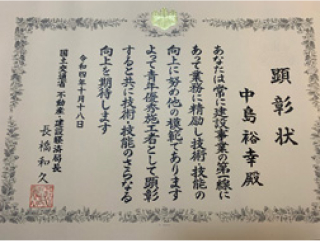 顕彰状
中島裕幸殿
あなたは常に建設事業の第一線に
あって業務に精励し技術・技能の
向上に努め他の模範であります
よって青年優秀施工者として顕彰
すると共に技術・技能のさらなる
向上を期待します
令和四年十月十八日
国土交通省 不動産・建設経済局長
長橋和久